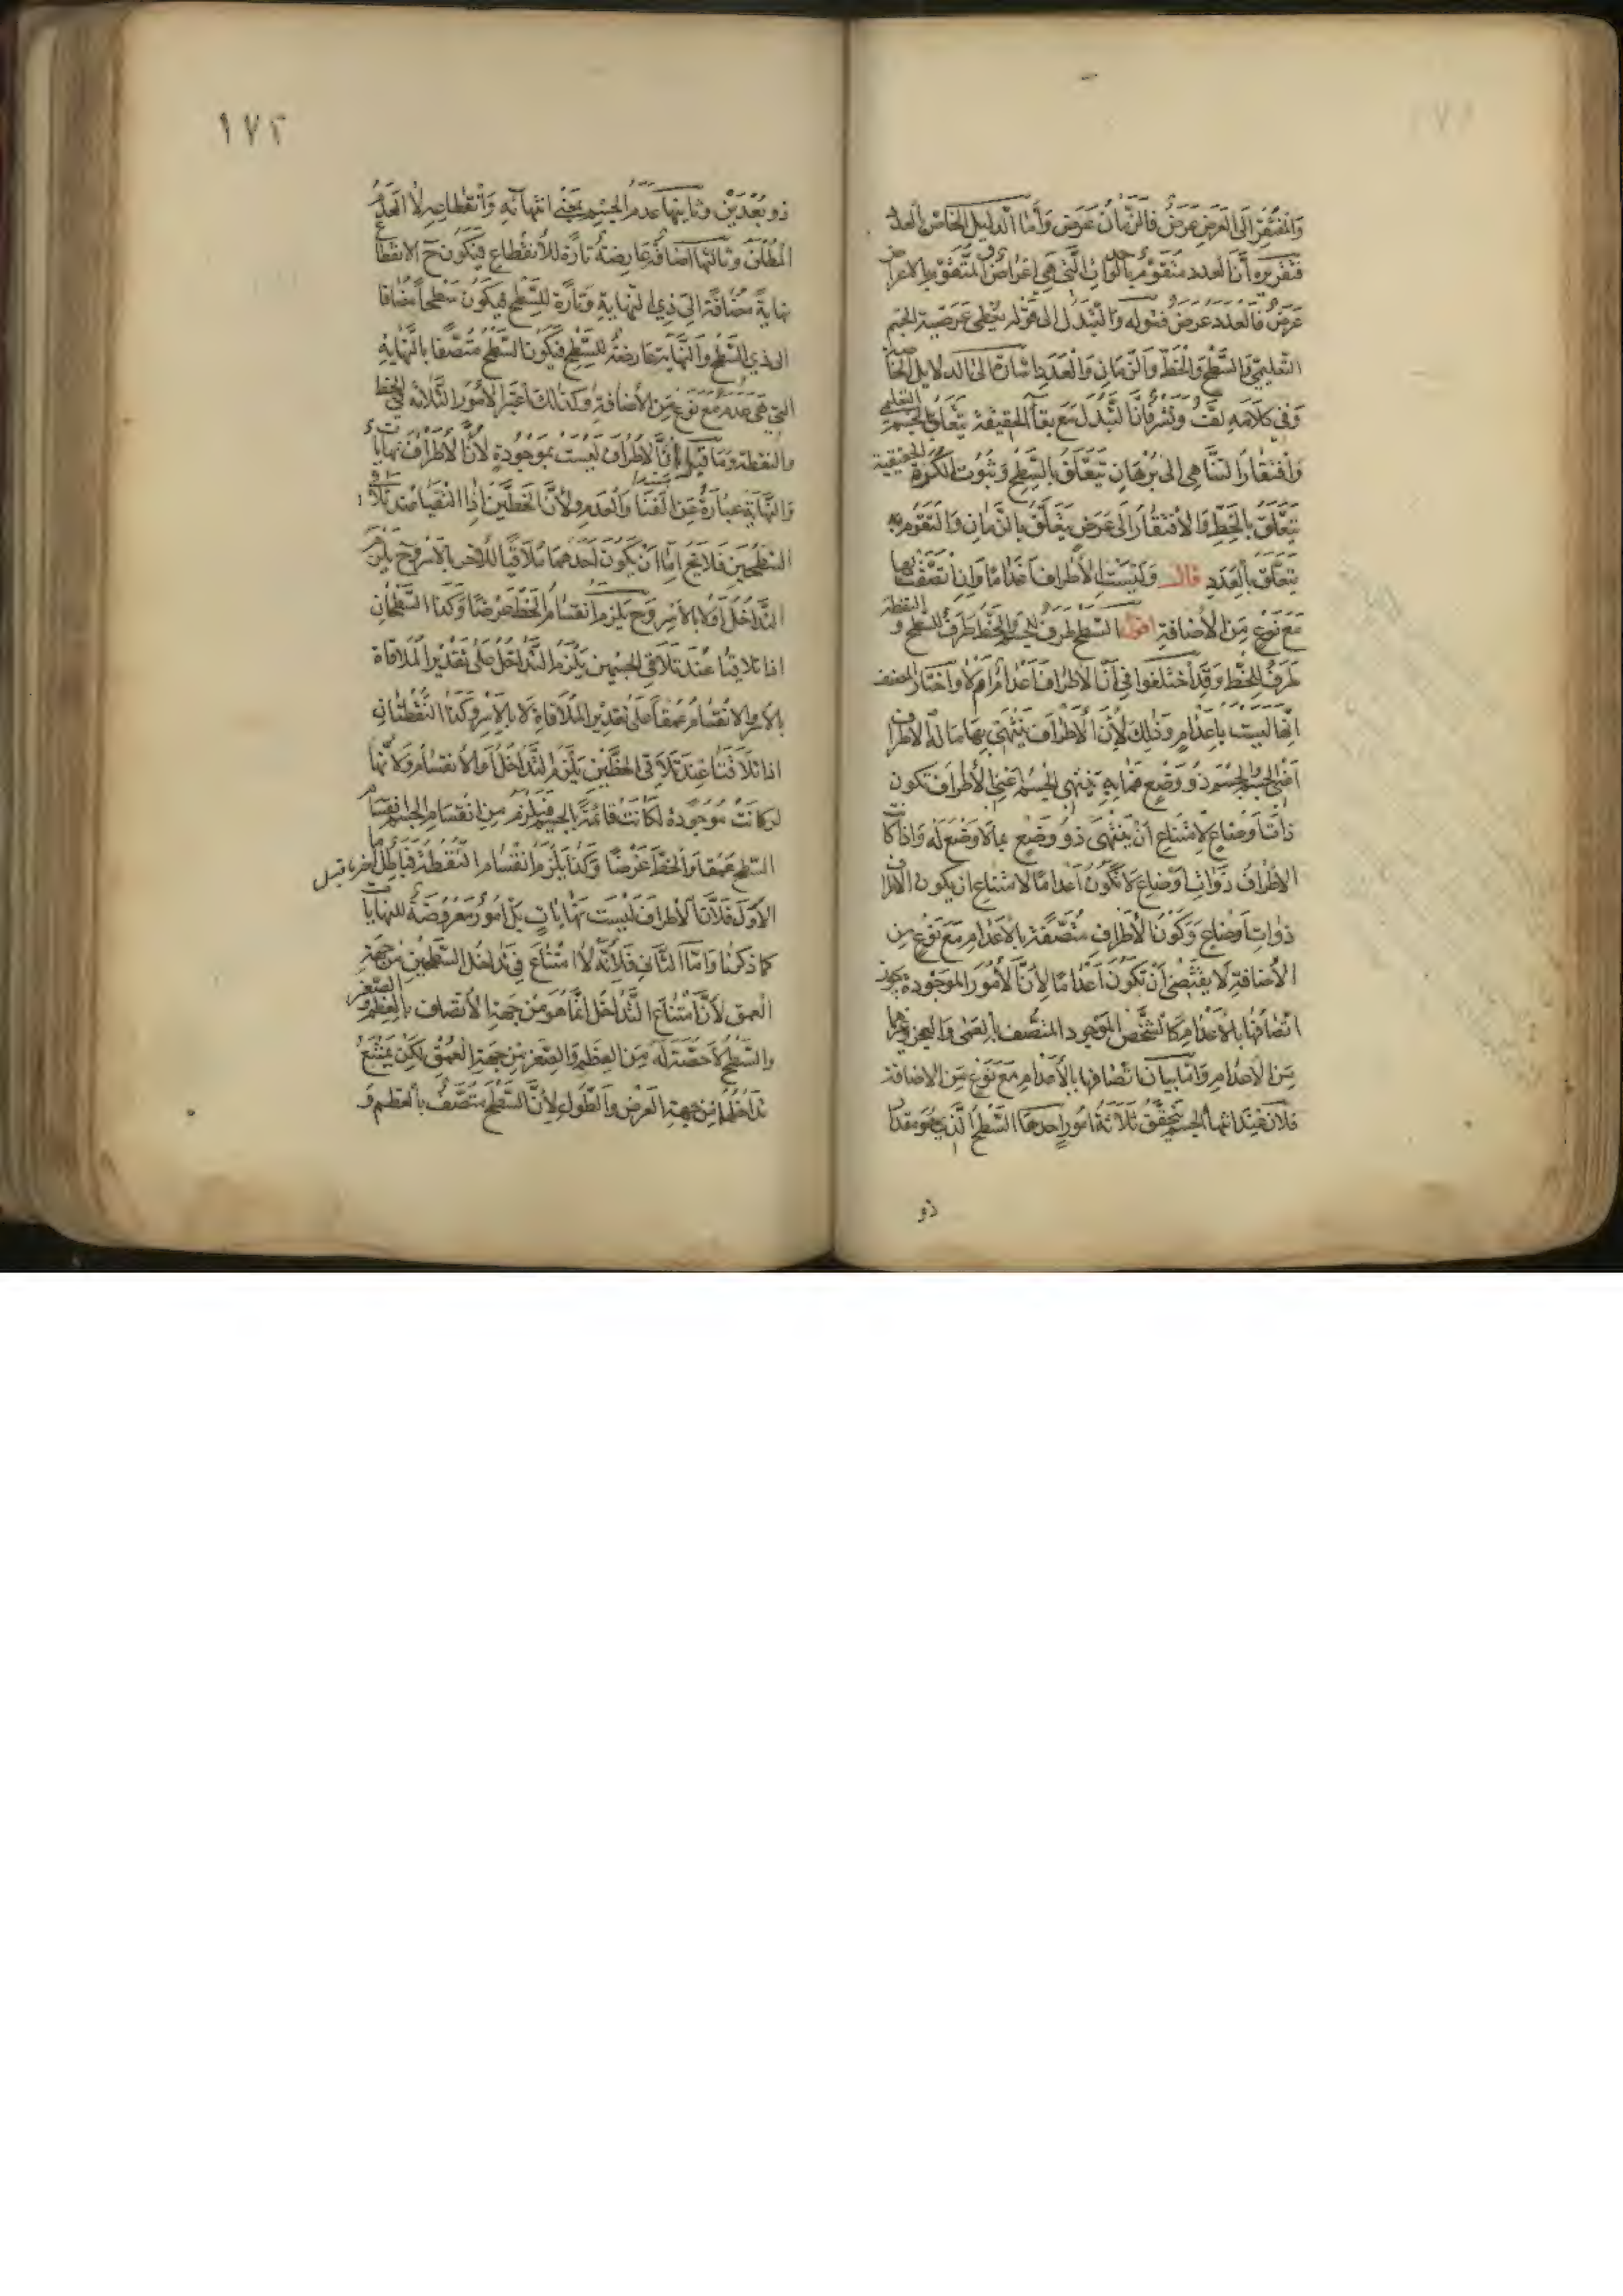 والمفتقر الى العرض عرض فالزمان عرض واما الدليل الخاص بالعدد
فتقريره ان العدد متقوم بالوحدات التي هي اعراض والمتقوم بالاعراض
عرض فالعدد عرض فقوله والتبدل الى قوله يعطى عرضية الجسم
التعليمي والسطح والخط والزمان والعدد اشارة الى الدلايل الخاصة
وفي كلامه لف ونشر فان التبدل مع بقاء الحقيقة يتعلق بالجسم التعليمي
وافتقار التناهي الى برهان يتعلق بالسطح وثبوت الكرة الحقيقية
يتعلق بالخط والافتقار الى عرض يتعلق بالزمان والتقوم به
يتعلق بالعدد قال وليست الاطراف اعداما وان اتصفت بها
مع نوع من الاضافة اقول السطح طرف الجسم والخط طرف للسطح و النقطة
طرف للخط وقد اختلفوا في ان الاطراف اعدام ام لا واختار المصنف
انها ليست باعدام وذلك لان الاطراف ينتهي بها ما له الاطراف
اعني الجسم والجسم ذو وضع فما به ينتهي الجسم اعني الاطراف تكون
ذات اوضاع لامتناع ان ينتهى ذو وضع بما لا وضع له واذا كانت
الاطراف ذوات اوضاع لا تكون اعداما لامتناع ان يكون الاعدام
ذوات اوضاع وكون الاطراف متصفة بالاعدام مع نوع من
الاضافة لا يقتضي ان تكون اعداما لان الامور الموجودة يجوز
اتصافها بالاعدام كالشخص الموجود المتصف بالعمى والعجز وغيرهما
من الاعدام واما بيان اتصافها بالاعدام مع نوع من الاضافة
فلان عند انتهاء الجسم يتحقق ثلاثة امور احدها السطح الذي هو مقدار
ذو
١٧٢
ذو بعدين وثانيها عدم الجسم بمعنى انتهائه وانقطاعه لا العدم
المطلق وثالثها اضافة عارضة تارة للانقطاع فيكون ح الانقطاع
نهاية مضافة الى ذي النهاية وتارة للسطح فيكون سطحا مضافا
الى ذي السطح والنهاية عارضة للسطح فيكون السطح متصفا بالنهاية
التي هي عدم مع نوع من الاضافة وكذلك اعتبر الامور الثلاثة في الخط
والنقطة وما قيل ان الاطراف ليست بموجودة لان الاطراف نهايات
والنهاية عبارة عن الفناء والعدم ولان الخطين اذا التقيا عند تلاقي
السطحين فلا يخ اما ان يكون احدهما ملاقيا للاخر بالاسر وح يلزم
التداخل او لا بالاسر وح يلزم انقسام الخط عرضا وكذا السطحان
اذا تلاقيا عند تلاقي الجسمين يلزم التداخل على تقدير الملاقاة
بالاسر والانقسام عمقا على تقدير الملاقاة لا بالاسر وكذا النقطتان
اذا تلاقتا عند تلاقي الخطين يلزم التداخل او الانقسام ولانها
لو كانت موجودة لكانت قائمة بالجسم فيلزم من انقسام الجسم انقسام
السطح عمقا والخط عرضا وكذا يلزم انقسام النقطة فباطل اما
الاول فلان الاطراف ليست نهايات بل امور معروضة للنهايات
كما ذكرنا واما الثاني فلانه لا امتناع في تداخل السطحين من جهة
العمق لان امتناع التداخل انما هو من جهة الاتصاف بالعظم والصغر
والسطح لا حصة له من العظم والصغر من جهة العمق لكن يمتنع
تداخلهما من جهة العرض والطول لان السطح متصف بالعظم و